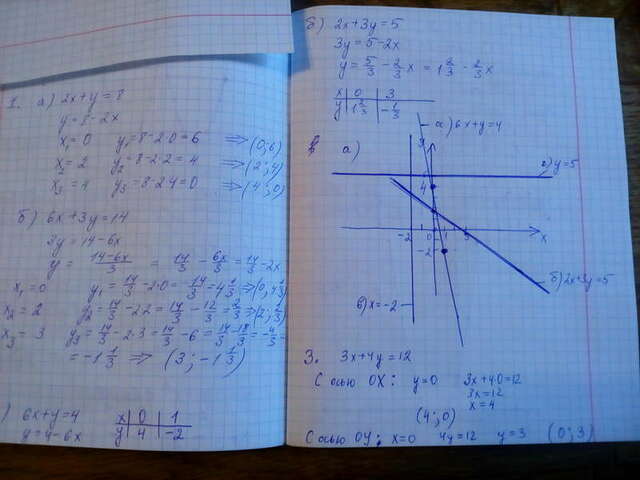 1. а) 2x+y=8
y=8-2x
x₁=0 y₁=8-2·0=6 ⟹(0;6)
x₂=2 y₂=8-2·2=4 ⟹(2;4)
x₃=4 y₃=8-2·4=0 ⟹(4;0)
б) 6x+3y=14
3y=14-6x
y= (14-6x)/3 = 14/3 - 6x/3 = 14/3 -2x
x₁=0 y₁= 14/3 -2·0= 14/3 =4 1/3 ⟹(0; 4 1/3)
x₂=2 y₂= 14/3 -2·2= 14/3 - 12/3 = 2/3 ⟹(2; 2/3)
x₃=3 y₃= 14/3 -2·3= 14/3 -6= 14/3 - 18/3 = - 4/3 =
= -1 1/3 ⟹ (3; -1 1/3)
) 6x+y=4
y=4-6x
x 0 1
y 4 -2
б) 2x+3y=5
3y=5-2x
y= 5/3 - 2/3 x = 1 2/3 - 2/3 x
x 0 3
y 1 2/3 - 1/3
а) 6x+y=4
а)
г) y=5
4
-2 0 1 3 x
-2
б) 2x+3y=5
в) x=-2
3. 3x+4y=12
С осью OX: y=0 3x+4·0=12
3x=12
x=4
(4;0)
С осью OY: x=0 4y=12 y=3 (0;3)